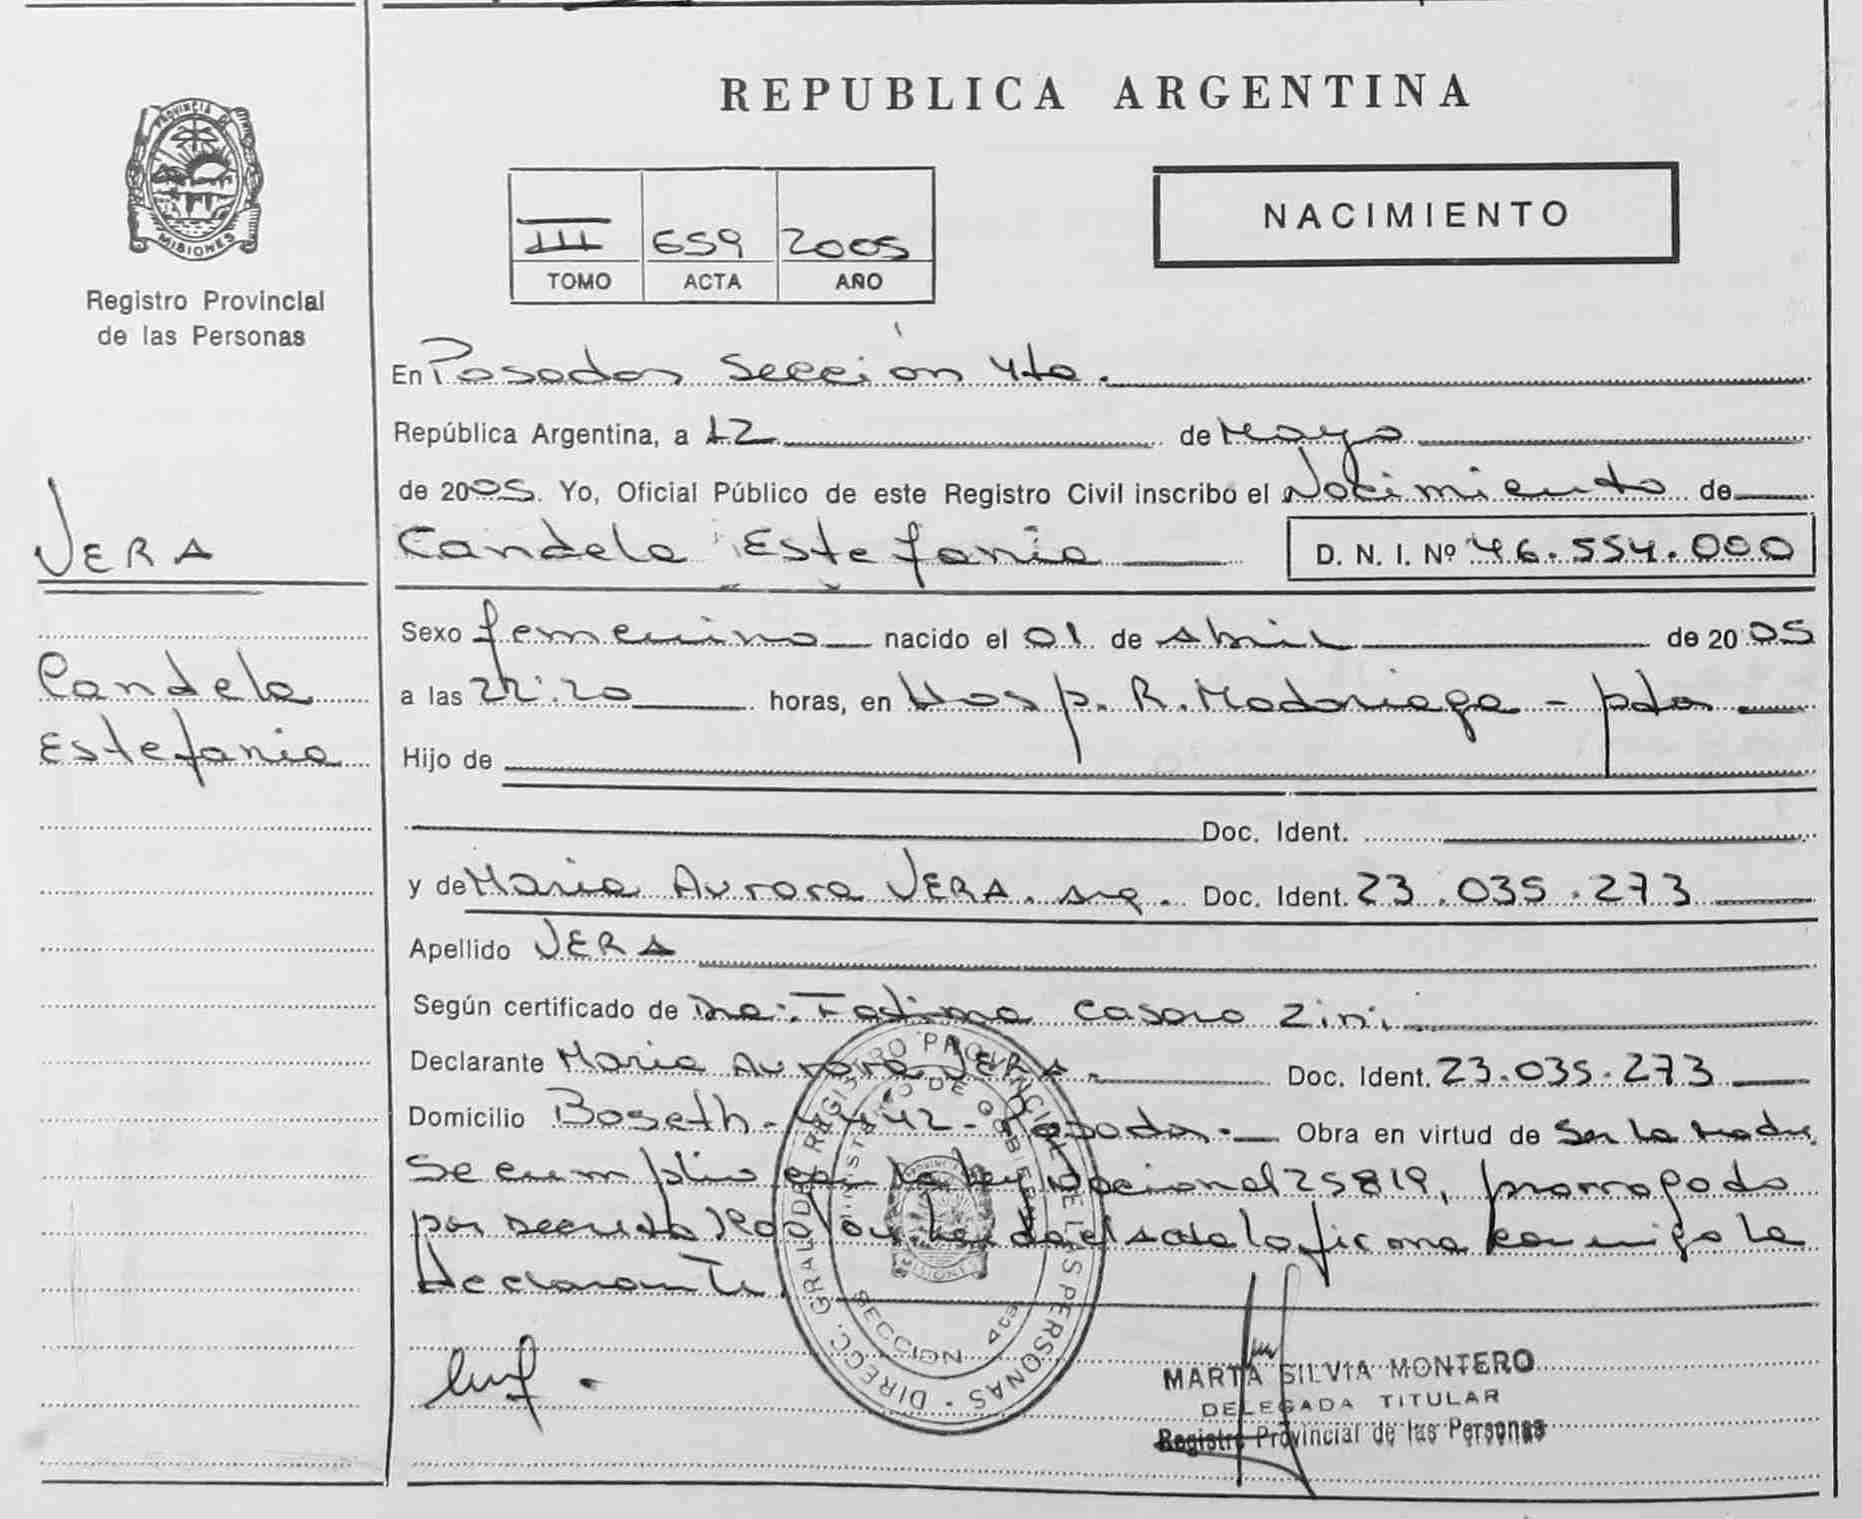 REPUBLICA ARGENTINA
PROVINCIA DE
MISIONES
Registro Provincial
de las Personas
III 659 2005
TOMO ACTA AÑO
NACIMIENTO
VERA
Candela
Estefania
En Posadas Sección 4ta.
República Argentina, a 12 de Mayo
de 2005. Yo, Oficial Público de este Registro Civil inscribo el Nacimiento de
Candela Estefania D. N. I. Nº 46.554.000
Sexo femenino nacido el 01 de Abril de 2005
a las 22:20 horas, en Hosp. R. Madariaga - pdas
Hijo de
Doc. Ident.
y de Maria Aurora VERA. arg. Doc. Ident. 23.035.273
Apellido VERA
Según certificado de Dra: Fatima Casaro Zini
Declarante Maria Aurora VERA. Doc. Ident. 23.035.273
Domicilio Boseth - 4442 - Posadas. Obra en virtud de Ser la Madre,
Se cumplio con la ley Nacional 25819, prorrogado
por decreto leida el acta la firma conmigo la
Declarante.
DIRECC. GRAL. DEL REGISTRO PROVINCIAL DE LAS PERSONAS
MINISTERIO DE GOBIERNO
MISIONES
SECCION 4ta
MARTA SILVIA MONTERO
DELEGADA TITULAR
Registro Provincial de las Personas